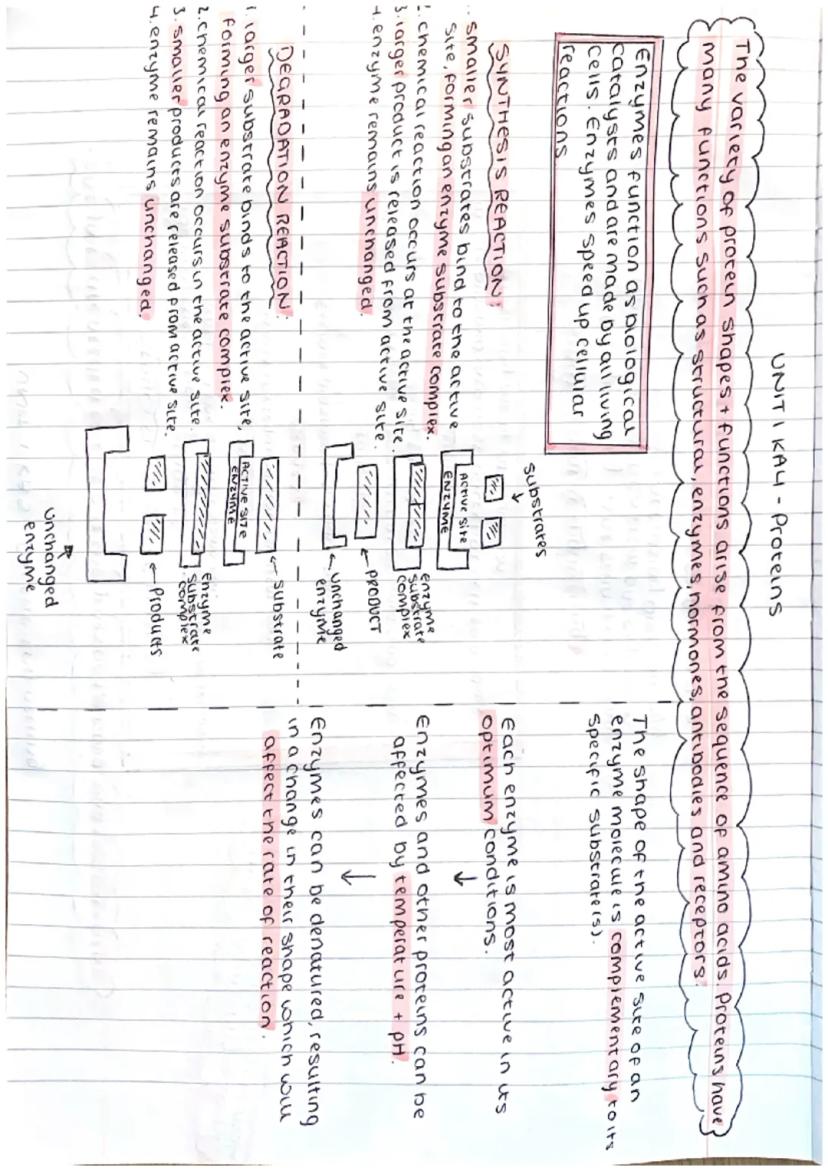 UNIT 1 KA4 - Proteins
The variety of protein shapes + functions arise from the sequence of amino acids. Proteins have
many functions such as structural, enzymes, hormones, antibodies and receptors.
Enzymes function as biological
catalysts and are made by all living
cells. Enzymes speed up cellular
reactions
SYNTHESIS REACTION:
smaller substrates bind to the active
site, forming an enzyme substrate complex.
2. chemical reaction occurs at the active site.
3. larger product is released from active site.
4. enzyme remains unchanged
substrates
ACTIVE SITE
ENZYME
enzyme
substrate
complex
PRODUCT
unchanged
enzyme
DEGRADATION REACTION:
1. larger substrate binds to the active site,
forming an enzyme substrate complex.
2. chemical reaction occurs in the active site.
3. smaller products are released from active site.
4. enzyme remains unchanged.
substrate
ACTIVE SITE
ENZYME
enzyme
substrate
complex
Products
unchanged
enzyme
The shape of the active site of an
enzyme molecule is complementary to its
specific substrate(s).
Each enzyme is most active in its
optimum conditions.
Enzymes and other proteins can be
affected by temperature + pH.
Enzymes can be denatured, resulting
in a change in their shape which will
affect the rate of reaction.